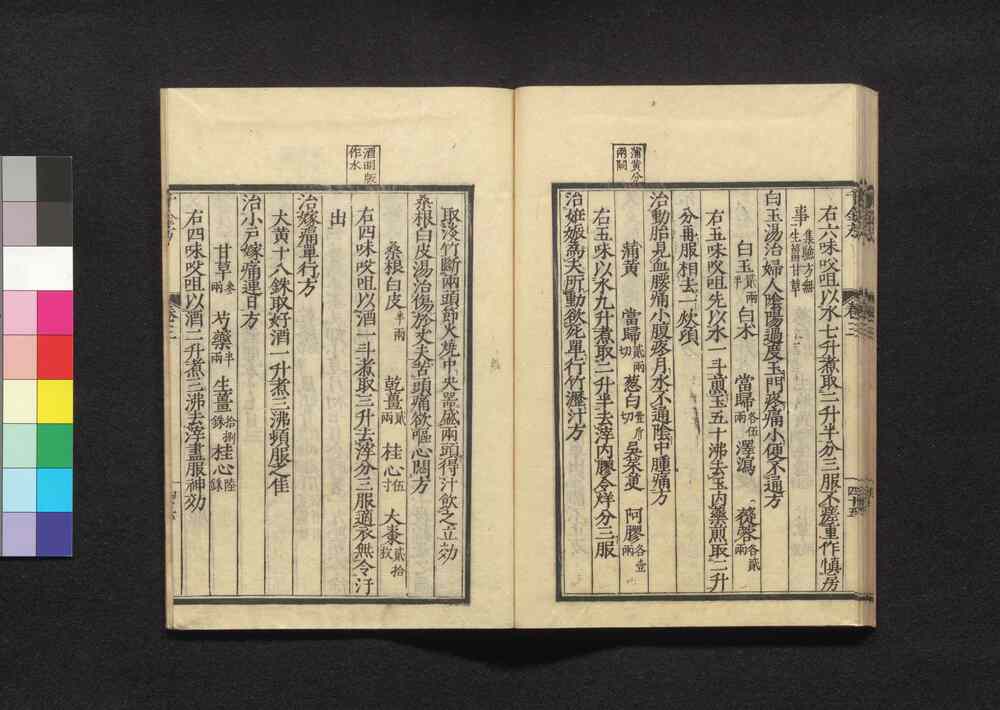 蒲黃分
兩闕
右六味㕮咀以水七升煮取二升半分三服不差重作愼房
事集驗方無
生薑甘草
白玉湯治婦人陰陽過度玉門疼痛小便不通方
白玉貳兩半 白朮 當歸各伍兩 澤瀉 蓯蓉各貳兩
右五味㕮咀先以水一斗煎玉五十沸去玉內藥煎取二升
分再服相去一炊頃
治動胎見血腰痛小腹疼月水不通陰中腫痛方
蒲黃 當歸貳兩切 葱白壹斤切 吳茱萸 阿膠各壹兩
右五味以水九升煮取二升半去滓內膠令烊分三服
治姙娠爲夫所動欲死單行竹瀝汁方
千金方
卷三
四十五
酒明版
作水
取淡竹斷兩頭節火燒中央器盛兩頭得汁飮之立効
桑根白皮湯治傷於丈夫苦頭痛欲嘔心悶方
桑根白皮半兩 乾薑貳兩 桂心伍寸 大棗貳拾枚
右四味㕮咀以酒一斗煮取三升去滓分三服適衣無令汗
出
治嫁痛單行方
大黃十八銖取好酒一升煮三沸頓服之佳
治小戶嫁痛連日方
甘草參兩 芍藥半兩 生薑拾捌銖 桂心陸銖
右四味㕮咀以酒二升煮三沸去滓盡服神効
千金方
卷三